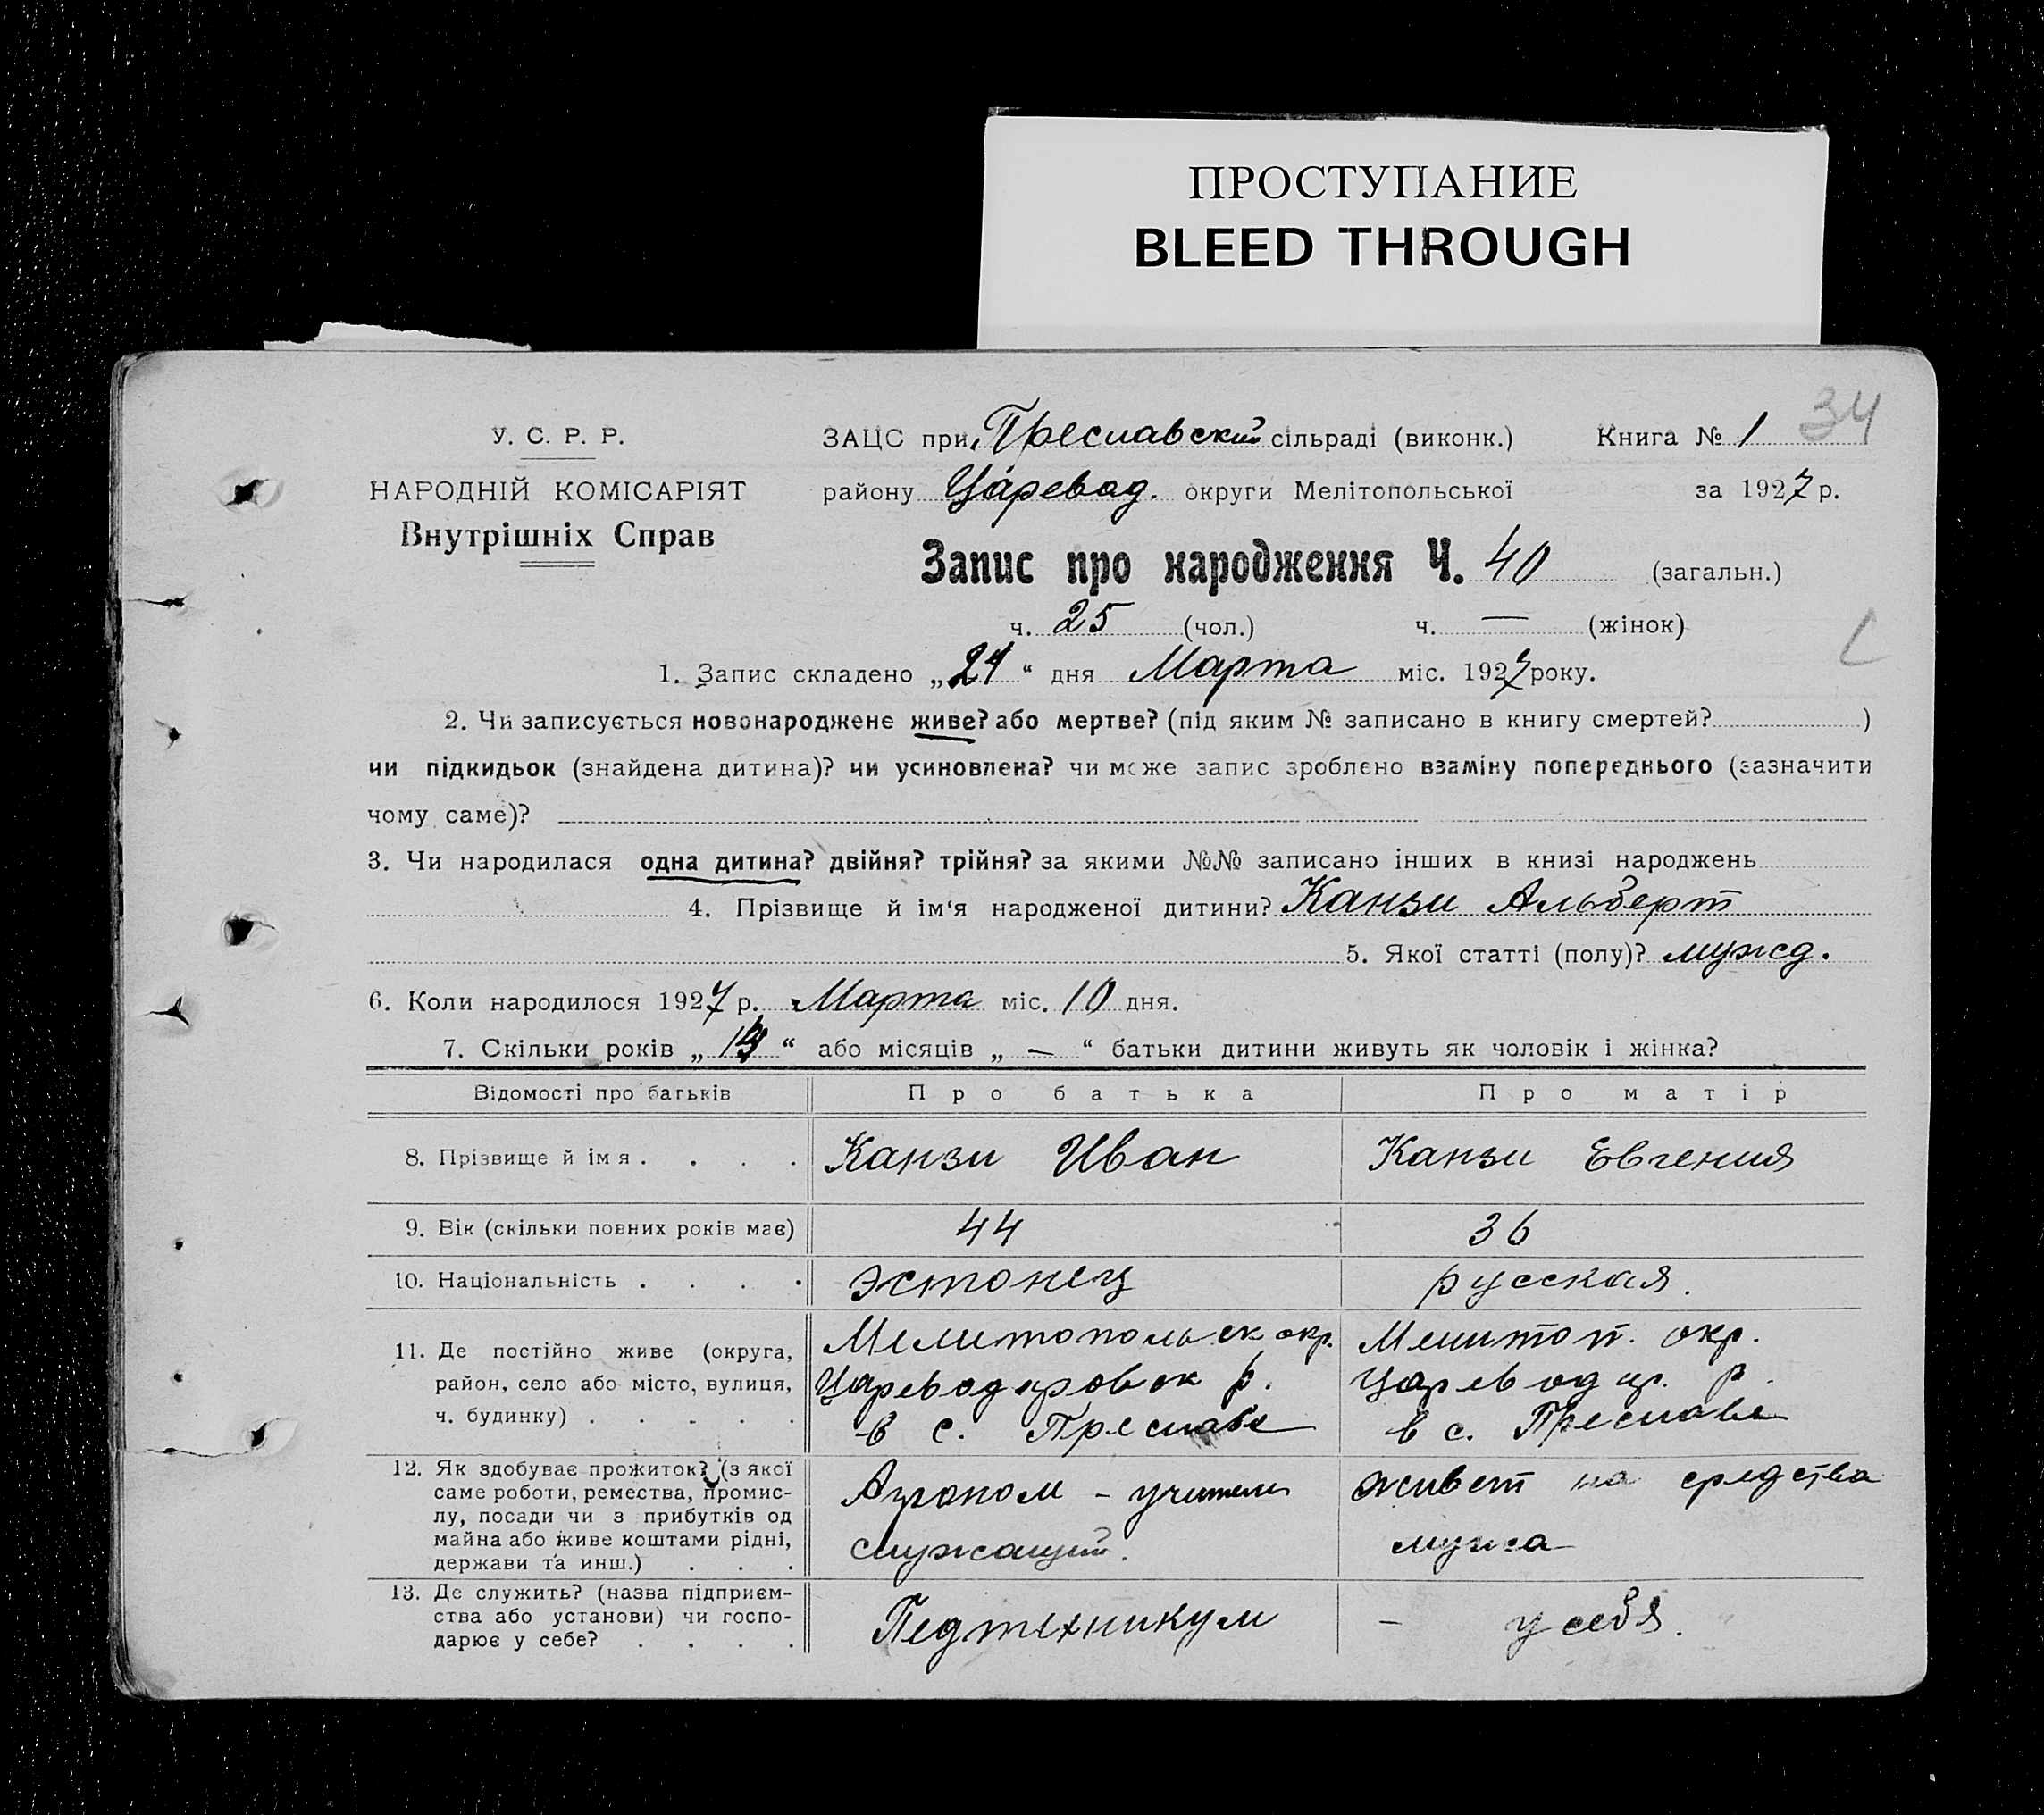 ПРОСТУПАНИЕ
BLEED THROUGH
34
У. С. Р. Р.
НАРОДНІЙ КОМІСАРІЯТ
Внутрішніх Справ
ЗАЦС при Преславский сільраді (виконк.) Книга № 1
району Царевод. округи Мелітопольської за 1927 р.
Запис про народження Ч. 40 (загальн.)
ч. 25 (чол.) ч. — (жінок)
1. Запис складено „24“ дня Марта міс. 1927 року.
2. Чи записується новонароджене живе? або мертве? (під яким № записано в книгу смертей? )
чи підкидьок (знайдена дитина)? чи усиновлена? чи може запис зроблено взаміну попереднього (зазначити
чому саме)?
3. Чи народилася одна дитина? двійня? трійня? за якими №№ записано інших в книзі народжень
4. Прізвище й ім‘я народженої дитини? Канзи Альберт
5. Якої статті (полу)? мужд.
6. Коли народилося 1927 р. Марта міс. 10 дня.
7. Скільки років „ “ або місяців „ — “ батьки дитини живуть як чоловік і жінка?
Відомості про батьків Про батька Про матір
8. Прізвище й імя . . . . Канзи Иван Канзи Евгения
9. Вік (скільки повних років має) 44 36
10. Національність . . . . эстонец русская.
11. Де постійно живе (округа,
район, село або місто, вулиця,
ч. будинку) . . . . .
Мелитопольск окр.
Цареводаровск р.
в с. Преславе
Мелитоп. окр.
Цареводар. р.
в с. Преславе
12. Як здобуває прожиток? (з якої
саме роботи, ремества, промис-
лу, посади чи з прибутків од
майна або живе коштами рідні,
держави та инш.) . . .
Агроном - учитель
служащий.
живет на средства
мужа
13. Де служить? (назва підприєм-
ства або установи) чи госпо-
дарює у себе? . . . .
Педтехникум
- у себя.